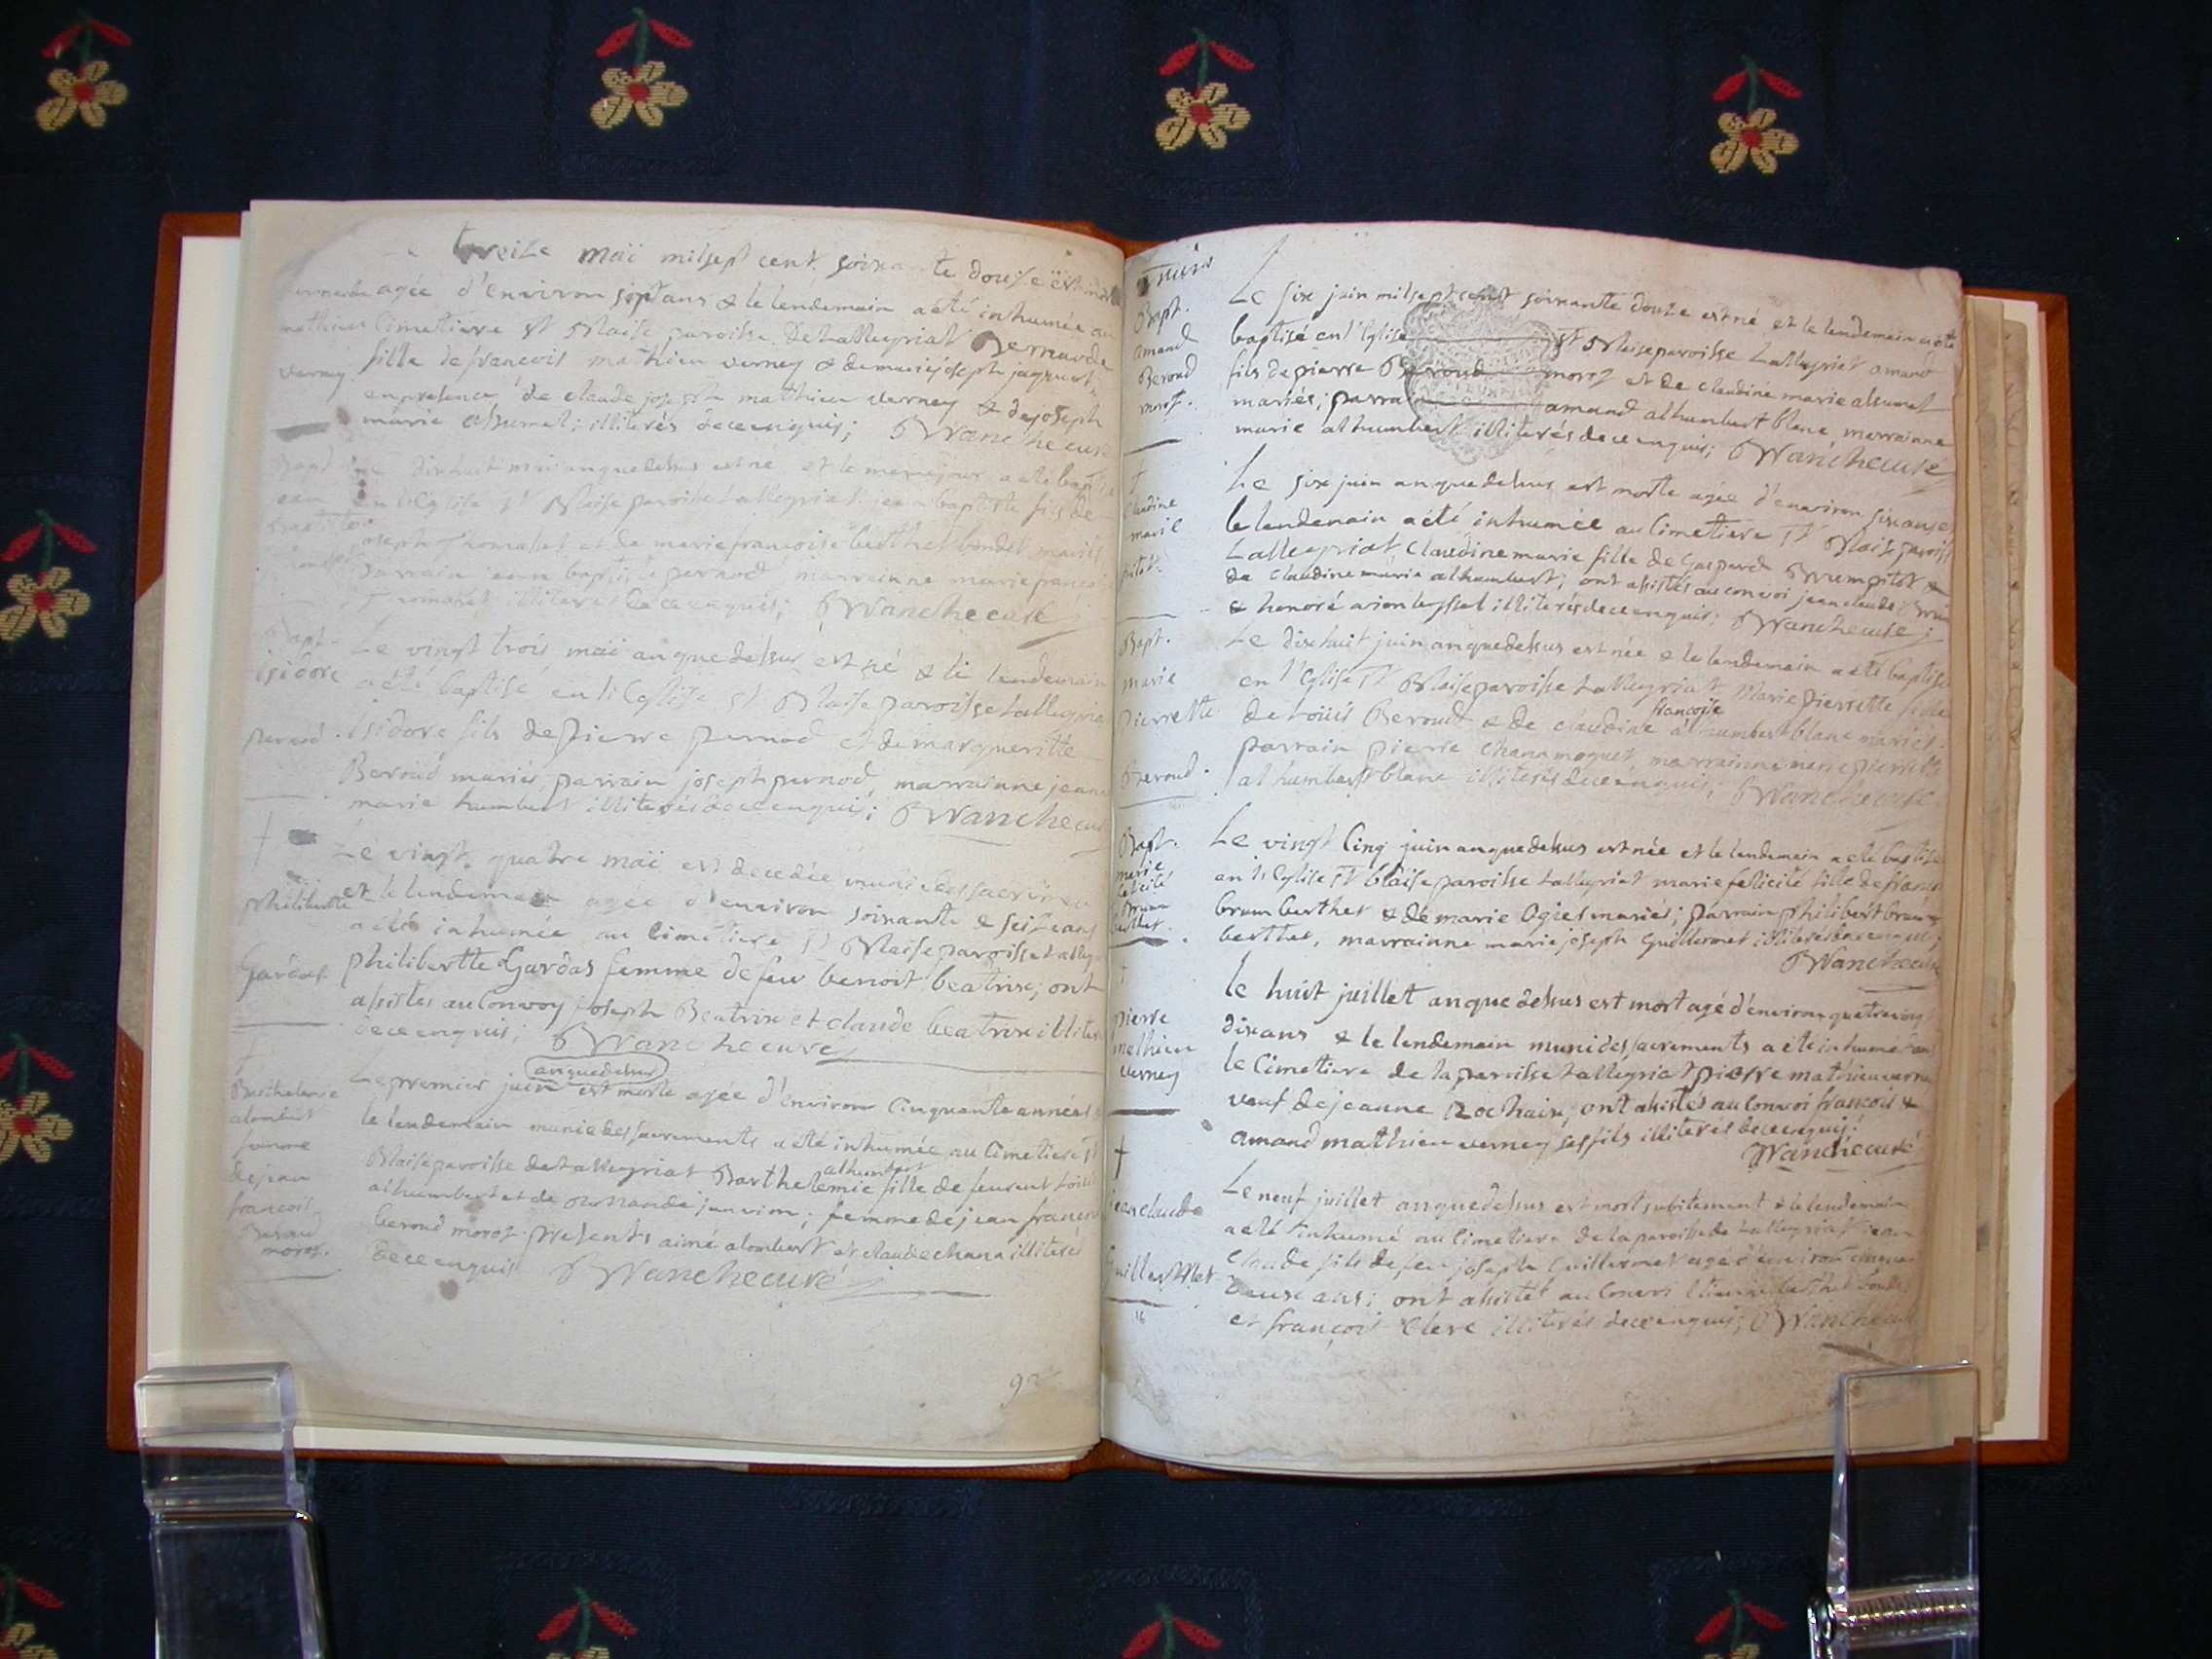 treize maï mil sept cent soixante douse est
agée d'environ sept ans & le lendemain a eté inhumée au
mathieu
Cimetiere St Blaise paroisse de tallegriat Bernarde
verney
fille de francois mathieu verney & de marie joseph
en presence de claude joseph matthieu verney & de joseph
marie alsumet; illiterés de ce enquis; BWanche curé
dixhuit mai an que dessus est né et le meme jour a eté baptisé
en l'Eglise St Blaise paroisse tallegriat jean baptiste fils de
joseph Thomasset et de marie francoise berthet bondet mariés
parrain jean baptiste pernod, marrainne marie
illiterés de ce enquis; BWanche curé
Bapt.
isidore
pernod.
Le vingt trois maï an que dessus est né & le lendemain
a eté baptisé en l'Eglise St Blaise paroisse tallegriat
Isidore fils de pierre pernod et de margueritte
Beroud mariés, parrain joseph pernod, marrainne jeanne
marie humbert illiterés de ce enquis; BWanche curé
†
philibertte
Gardas
Le vingt quatre maï est decedée munie des sacremens
et le lendemain agée d'environ soixante & seize ans
a eté inhumée au cimetiere St Blaise paroisse tallegriat
philibertte Gardas femme de feu benoit beatrix; ont
assistés au convoy joseph Beatrix et claude beatrix illiterés
de ce enquis; BWanche curé
†
Barthelemie
alombert
femme
de jean
francois
Beroud
moroz.
an que dessus
Le premier juin est morte agée d'environ cinquante années &
le lendemain munie des sacrements a eté inhumée au Cimetiere St
Blaise paroisse de tallegriat Barthelemie fille de
alhumbert et de janvion; femme de jean francois
beroud moroz. presents aimé alombert et claude chana illiterés
de ce enquis BWanche curé
92
Bapt.
amand
Beroud
moroz.
Le six juin mil sept cent soixante douze est né et le lendemain a eté
baptisé en l'Eglise St Blaise paroisse tallegriat amand
fils de pierre Beroud moroz et de claudine marie alsumet
mariés; parrain amand alhumbert blanc, marrainne
marie alhumbert illiterés de ce enquis; BWanche curé
†
claudine
marie
pitot.
Le six juin an que dessus est morte agée d'environ six ans &
le lendemain a eté inhumée au Cimetiere St Blaise paroisse
tallegriat, Claudine marie fille de Gaspard Brumpitot &
de claudine marie alhumbert; ont assistés au convoi jean claude
& honoré illiterés de ce enquis; BWanche curé
Bapt.
marie
pierrette
Beroud.
Le dix huit juin an que dessus est née & le lendemain a eté baptisée
en l'Eglise St Blaise paroisse tallegriat Marie pierrette fille
francoise
de Loüis Beroud & de claudine alhumbert blanc mariés.
parrain pierre chanamoguet, marrainne marie pierrette
alhumbert blanc illiterés de ce enquis; BWanche curé
Bapt.
marie
felicité
brun
berthet.
Le vingt Cinq juin an que dessus est née et le lendemain a eté baptisée
en l'Eglise St blaise paroisse tallegriat marie felicité fille de francois
brum berthet & de marie Ogier mariés; parrain philibert brum
berthet, marrainne marie joseph Guillermet illiterés de ce enquis;
BWanche curé
†
pierre
mathieu
verney
le huit juillet an que dessus est mort agé d'environ quatre vingt
dix ans & le lendemain muni des sacrements a eté inhumé
le Cimetiere de la paroisse tallegriat pierre mathieu verney
veuf de jeanne Rochaix; ont assistés au convoi francois &
amand mathieu verney ses fils illiterés de ce enquis;
BWanche curé
†
jean claude
guillermet
16
Le neuf juillet an que dessus est mort subitement & le lendemain
a eté inhumé au Cimetiere de la paroisse de tallegriat jean
claude fils de feu joseph Guillermet agé d'environ cinquante
deux ans; ont assistés au convoi Etienne berthet bondet
et francois clerc illiterés de ce enquis; BWanche curé